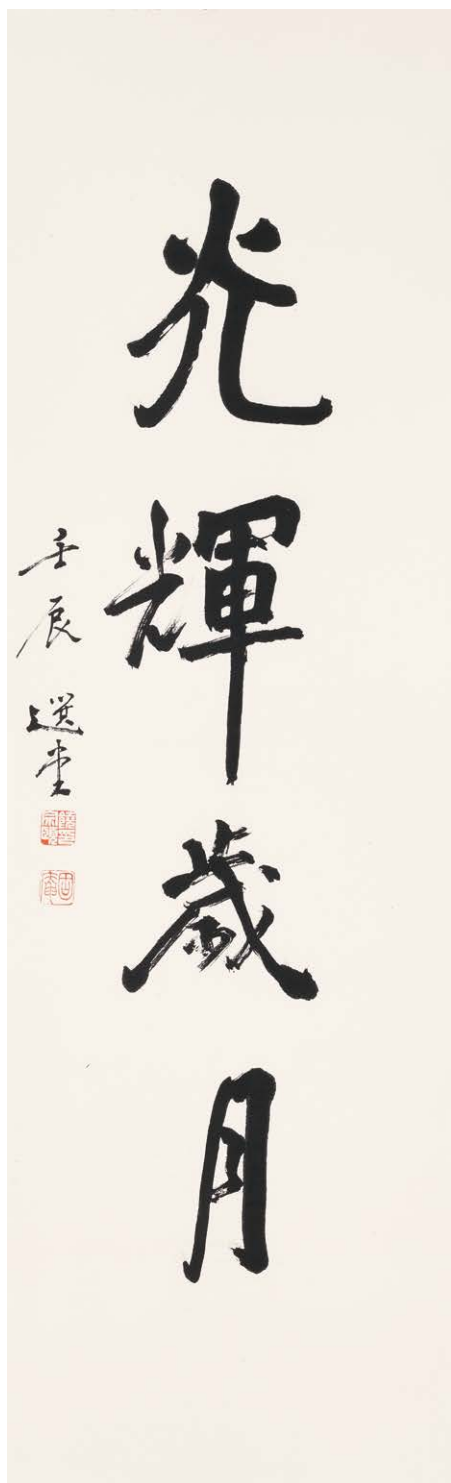 光輝歲月
壬辰 選堂